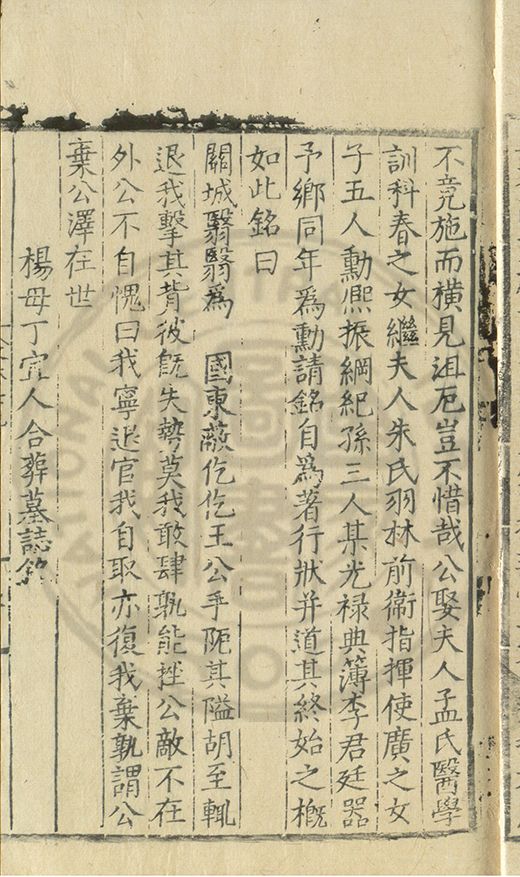 不竟施而橫見沮厄豈不惜哉公娶夫人孟氏醫學
訓科春之女繼夫人朱氏羽林前衛指揮使廣之女
子五人勳熈振綱紀孫三人某光禄典簿李君廷器
予鄉同年爲勳請銘自爲著行狀并道其終始之槪
如此銘曰
關城翳翳爲　國東蔽仡仡王公乎阨其隘胡至輒
退我擊其背彼旣失勢莫我敢肆孰能挫公敵不在
外公不自愧曰我寧退官我自取亦復我棄孰謂公
棄公澤在世
楊母丁宜人合葬墓誌銘